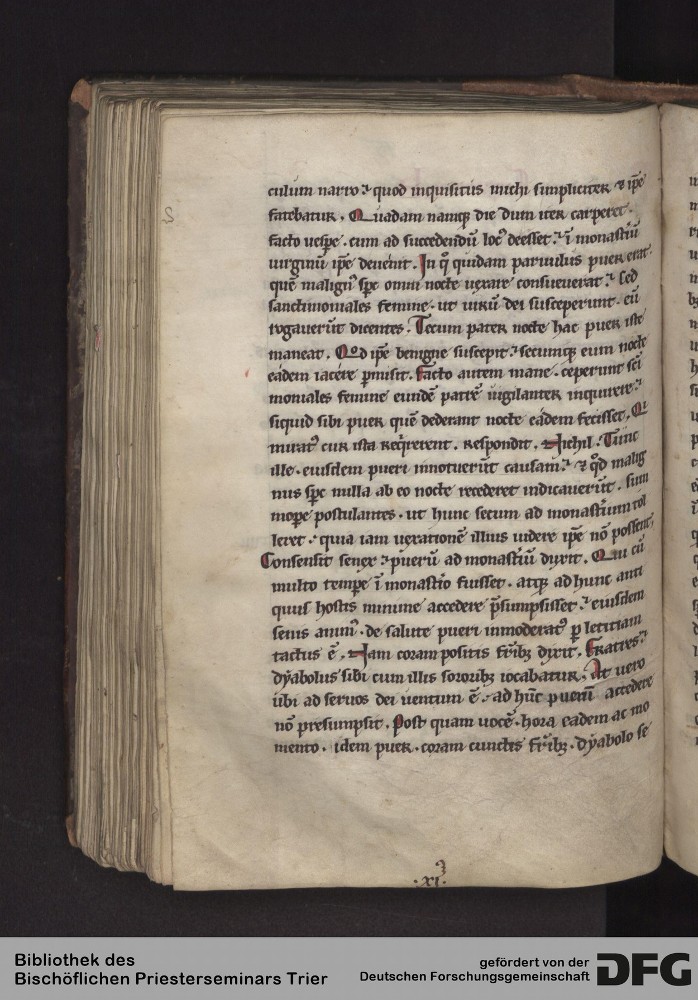 culum narro ⁊ quod inquisitus michi simpliciter ⁊ ip̄e
fatebatur. Quadam namq; die dum iter carperet.
facto uesꝑe. cum ad succedendū loc᷒ deesset. ⁊ ī monastiū
uirginū ip̄e deuenit. In q̊ quidam paruulus puer erat.
quē malign᷒ sp̄c omni nocte uexare consueuerat. Sed
sanctimoniales femine. ut uirū dei susceperunt. eū
rogauerūt dicentes. Tecum pater nocte hac puer iste
maneat. Qod ip̄e benigne suscepit. ⁊ secumq; eum nocte
eadem iacere ꝑmisit. Facto autem mane. ceperunt sc̄i
moniales femine eundē patrē uigilanter inquirere.
siquid sibi puer quē dederant nocte eadem fecisset. Qi
mirat᷒ cur ista req̇rerent. respondit. Nichil. Tunc
ille. eiusdem pueri innotuerūt causam. ⁊ q̊d malig
nus sp̄c nulla ab eo nocte recederet indicauerūt. sum
moꝑe postulantes. ut hunc secum ad monastīum tol
leret. quia iam uexationē illius uidere ip̄e nō possent.
Consensit senex. puerū ad monastīū duxit. Qui cū
multo temꝑe ī monastīo fuisset. atq; ad hunc anti
quus hostis minime accedere p̄sumpsisset. ⁊ eiusdem
senis anim᷒. de salute pueri inmoderat᷒ ꝑ letitiam
tactus ē. Nam coram positis fr̄ib; dixit. Fratres.
dyabolus sibi cum illis sororib; iocabatur. At uero
ubi ad seruos dei uentum ē. ad hūc puerū accedere
nō presumpsit. Post quam uocē. hora eadem ac mo
mento. idem puer. coram cunctis fr̄ib;. dyabolo se
.xi.
Bibliothek des
Bischöflichen Priesterseminars Trier
gefördert von der
Deutschen Forschungsgemeinschaft
DFG